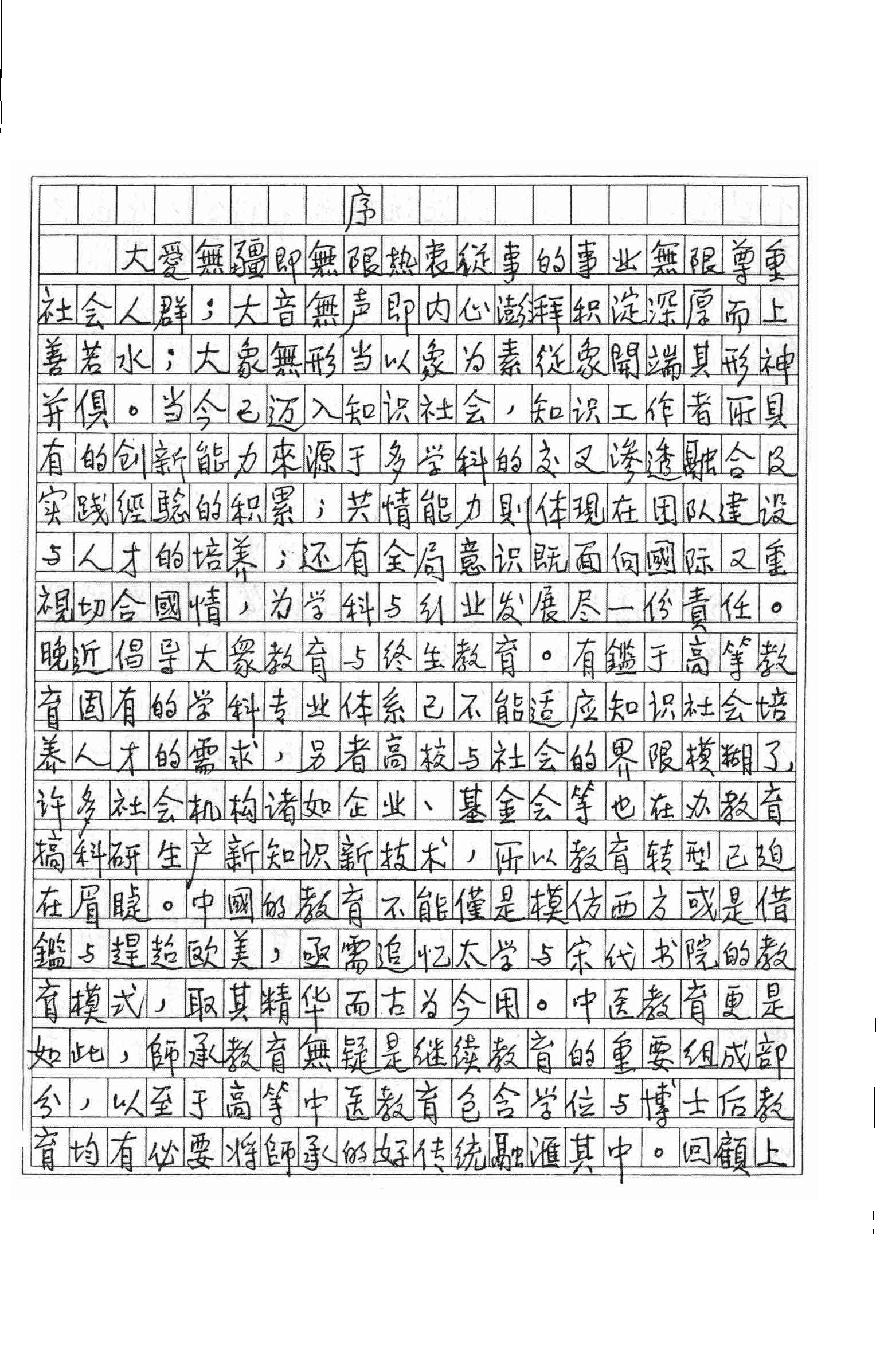 序
大愛無疆即無限热衷從事的事业無限尊重
社会人群；大音無声即内心澎拜积淀深厚而上
善若水；大象無形当以象为素從象開端其形神
并俱。当今已迈入知识社会，知识工作者所具
有的创新能力來源于多学科的交叉渗透融合及
实践經驗的积累；共情能力则体現在团队建设
与人才的培养；还有全局意识既面向國际又重
視切合國情，为学科与行业发展尽一份責任。
晚近倡导大衆教育与终生教育。有鑑于高等教
育固有的学科专业体系已不能适应知识社会培
养人才的需求，另者高校与社会的界限模糊了，
许多社会机构诸如企业、基金会等也在办教育
搞科研生产新知识新技术，所以教育转型已迫
在眉睫。中國的教育不能僅是模仿西方或是借
鑑与趕超欧美，亟需追忆太学与宋代书院的教
育模式，取其精华而古为今用。中医教育更是
如此，師承教育無疑是继续教育的重要组成部
分，以至于高等中医教育包含学位与博士后教
育均有必要将師承的好传统融滙其中。回顧上